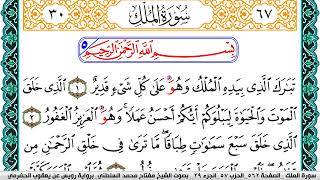 ٣٠ سُورَةُ الْمُلْكِ ٦٧
بِسْمِ اللَّهِ الرَّحْمَٰنِ الرَّحِيمِ
تَبَٰرَكَ الَّذِي بِيَدِهِ الْمُلْكُ وَهُوَ عَلَىٰ كُلِّ شَيْءٍ قَدِيرٌ ١ الَّذِي خَلَقَ
الْمَوْتَ وَالْحَيَوٰةَ لِيَبْلُوَكُمْ أَيُّكُمْ أَحْسَنُ عَمَلًا وَهُوَ الْعَزِيزُ الْغَفُورُ ٢
الَّذِي خَلَقَ سَبْعَ سَمَٰوَٰتٍ طِبَاقًا مَّا تَرَىٰ فِي خَلْقِ الرَّحْمَٰنِ مِن
سورة الملك . الصفحة ٥٦٢ . الحزب ٥٧ . الجزء ٢٩ . بصوت الشيخ مفتاح محمد السلطني . برواية رويس عن يعقوب الحضرمي